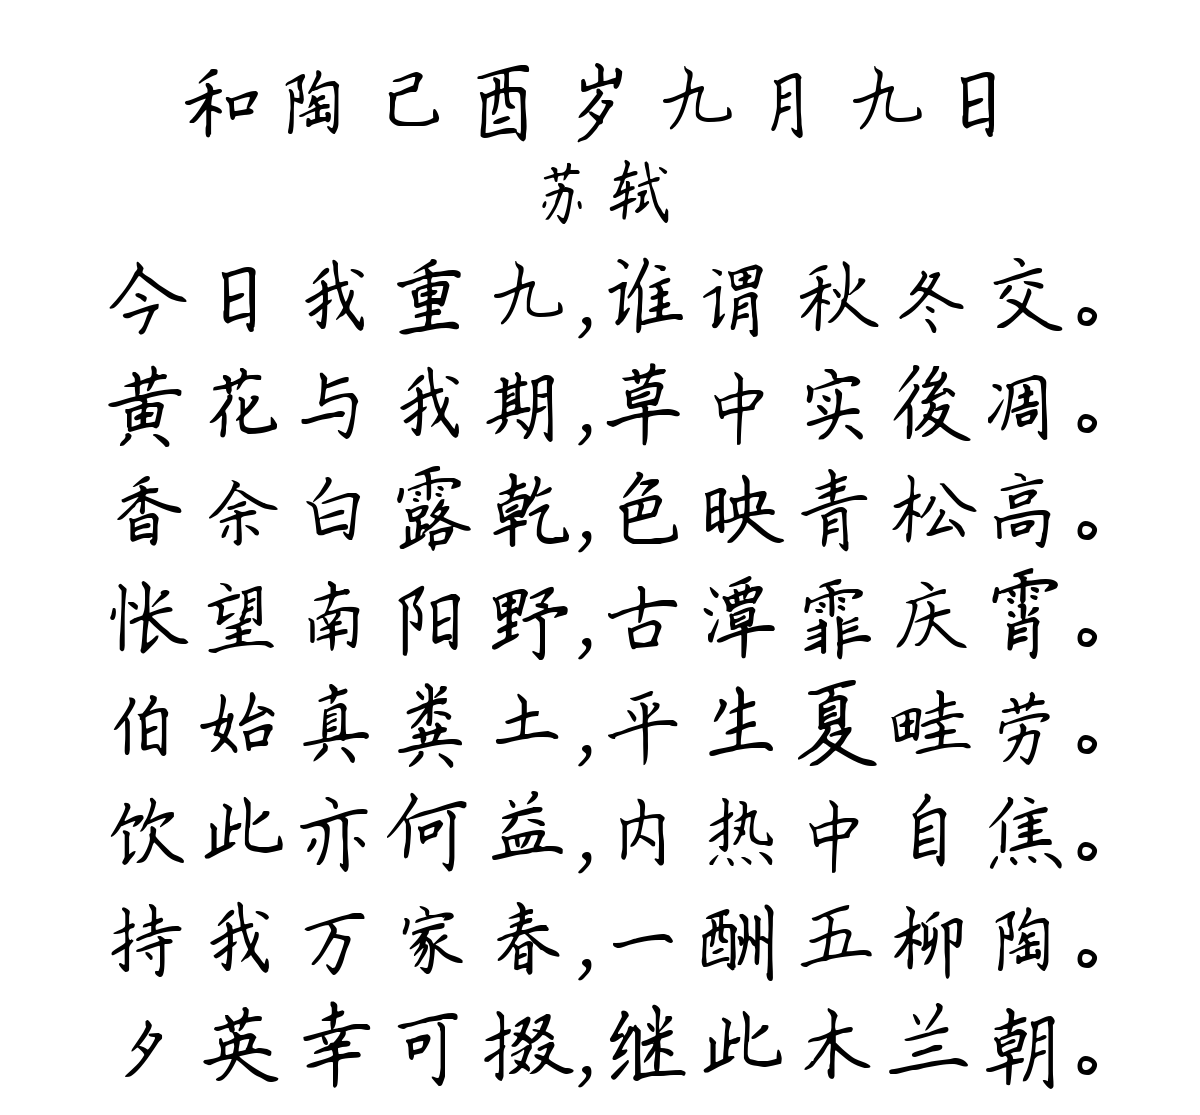 和陶己酉岁九月九日
苏轼
今日我重九,谁谓秋冬交。
黄花与我期,草中实後凋。
香余白露乾,色映青松高。
怅望南阳野,古潭霏庆霄。
伯始真粪土,平生夏畦劳。
饮此亦何益,内热中自焦。
持我万家春,一酬五柳陶。
夕英幸可掇,继此木兰朝。